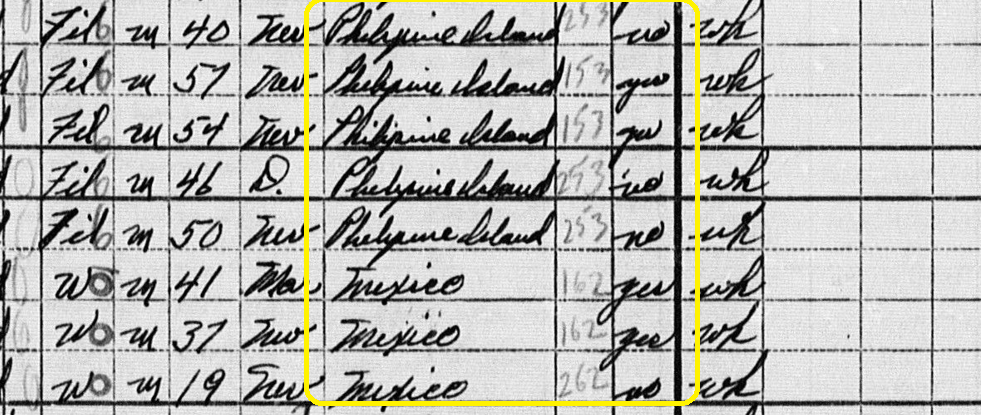 Fil m 40 Nev Philipine Island 253 no wk
Fil m 57 Nev Philipine Island 153 yes wk
Fil m 54 Nev Philipine Island 153 yes wk
Fil m 46 D. Philipine Island 253 no wk
Fil m 50 Nev Philipine Island 253 no wk
W m 41 Mar Mexico 162 yes wk
W m 37 Nev Mexico 162 yes wk
W m 19 Nev Mexico 262 no wk